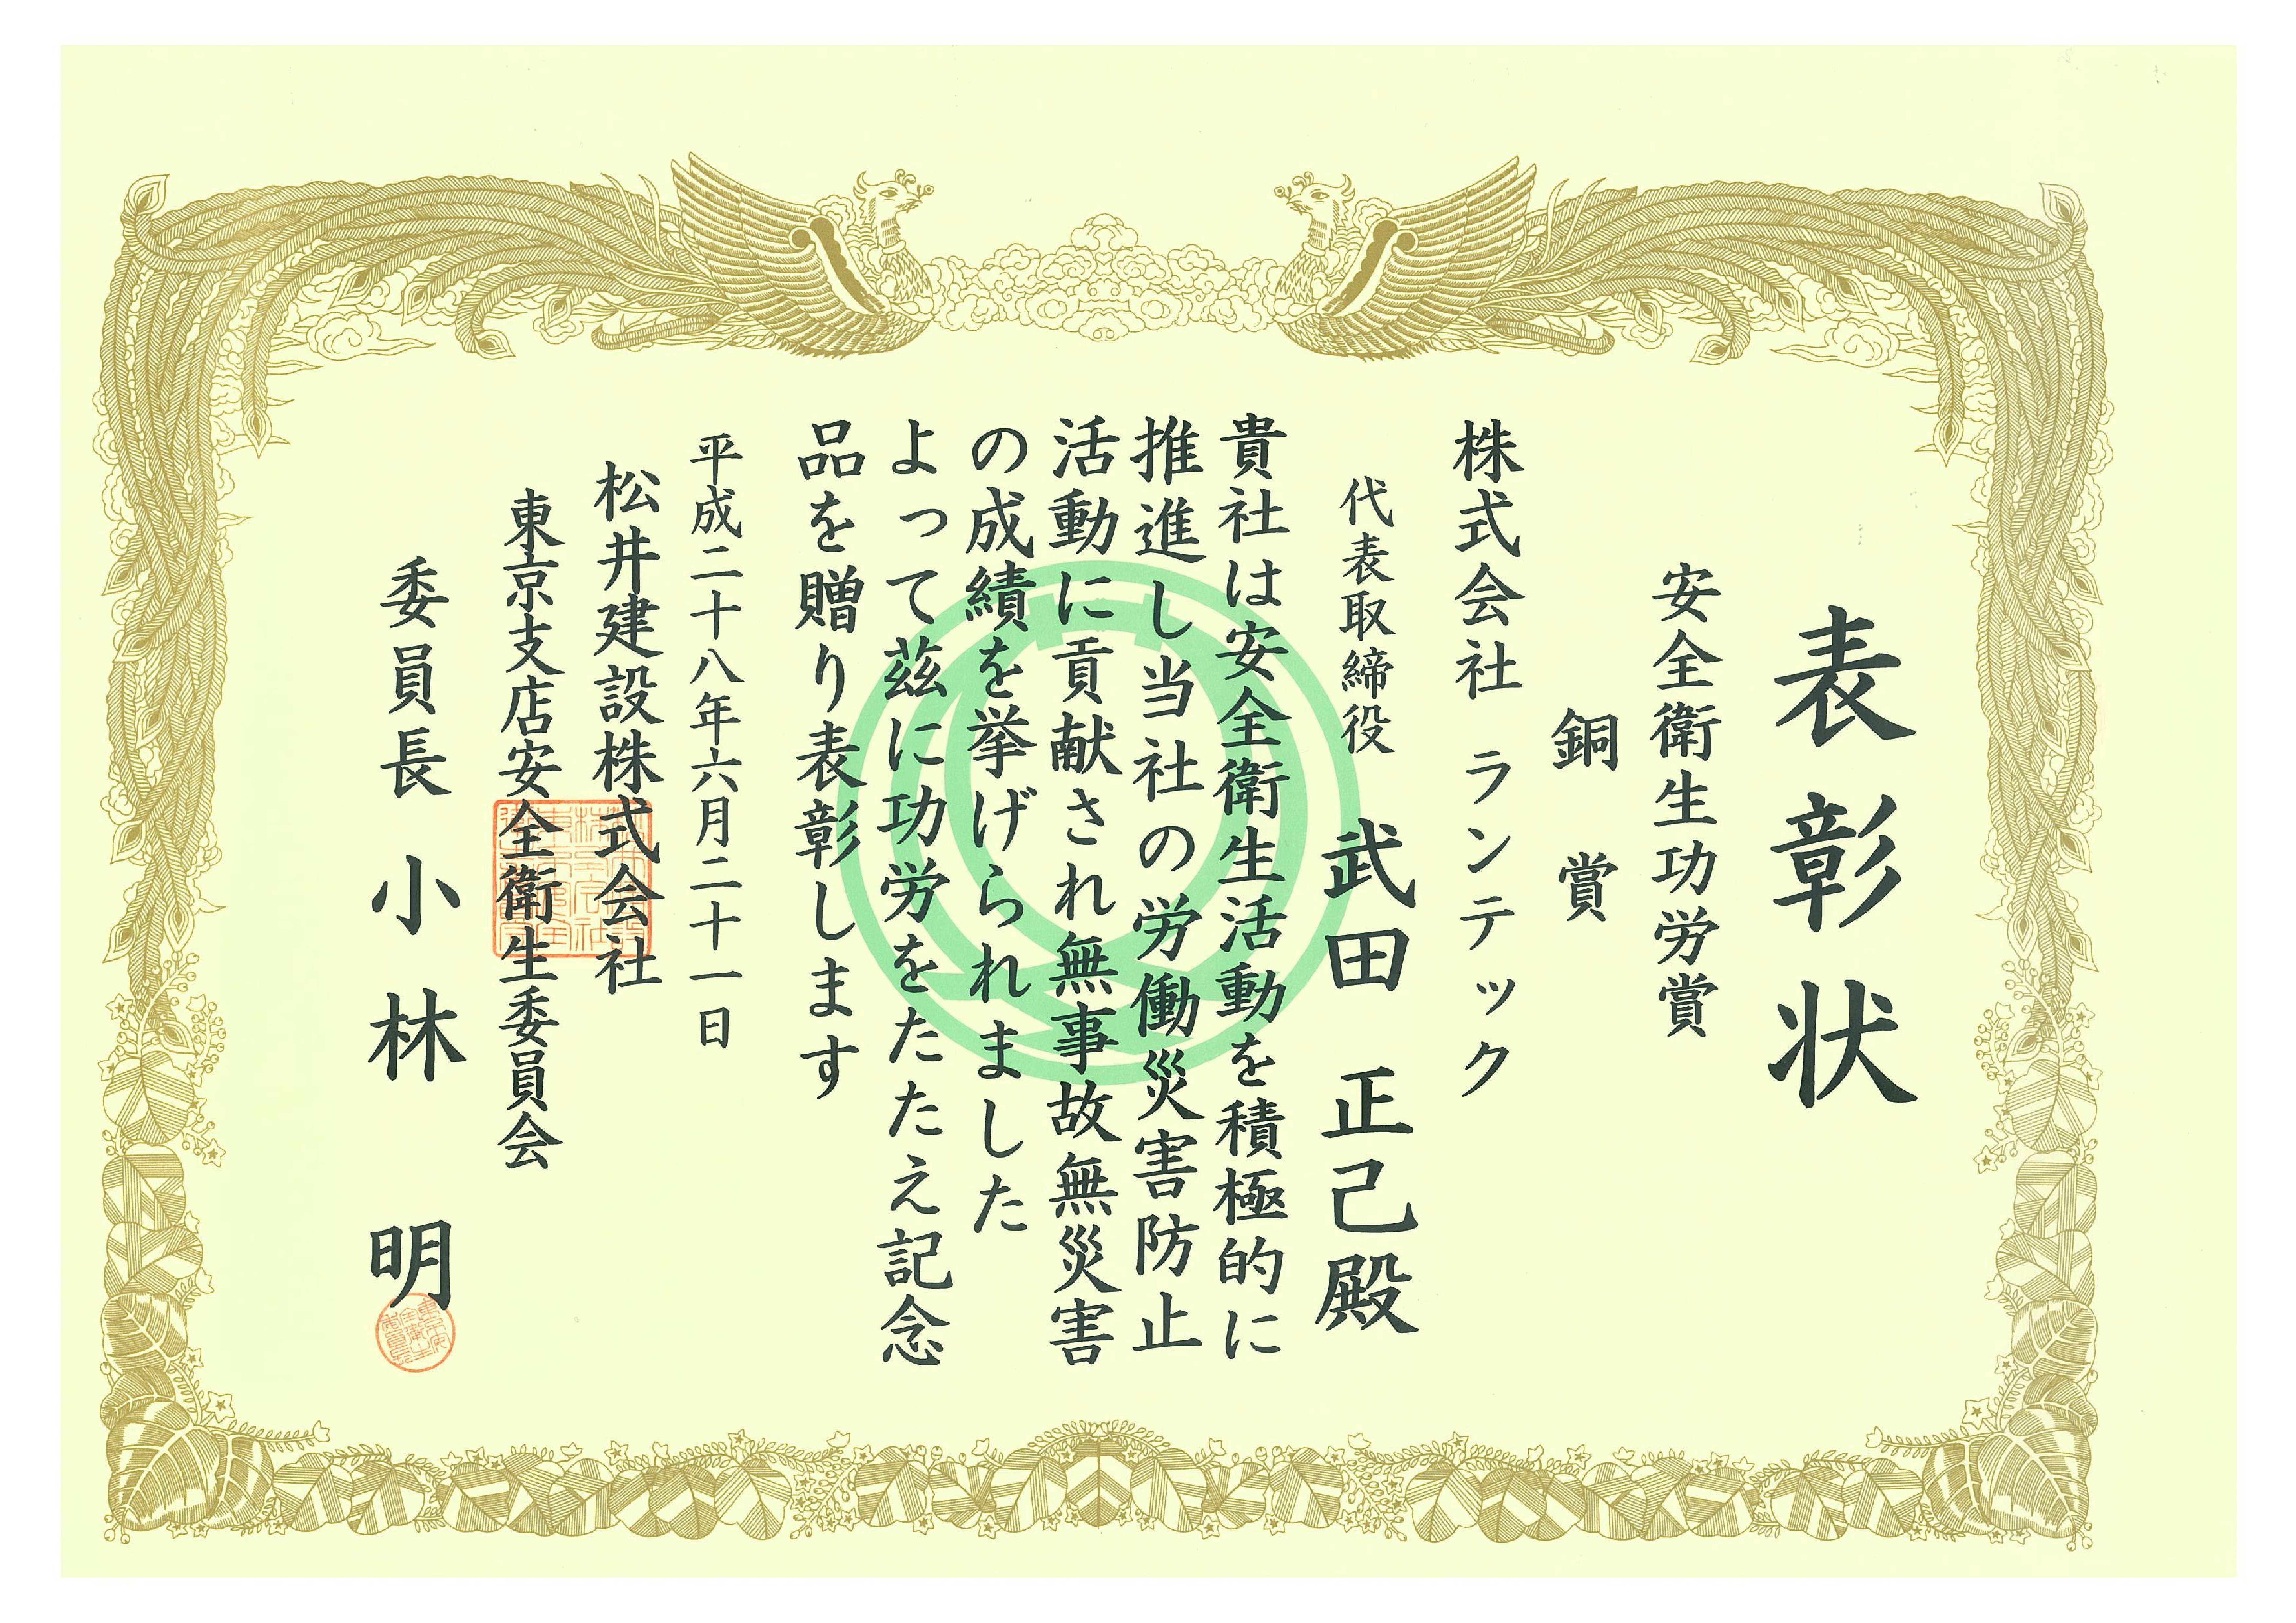 表彰状
安全衛生功労賞
銅賞
株式会社 ランテック
代表取締役 武田 正己殿
貴社は安全衛生活動を積極的に
推進し当社の労働災害防止
活動に貢献され無事故無災害
の成績を挙げられました
よって茲に功労をたたえ記念
品を贈り表彰します
平成二十八年六月二十一日
松井建設株式会社
東京支店安全衛生委員会
委員長 小林 明